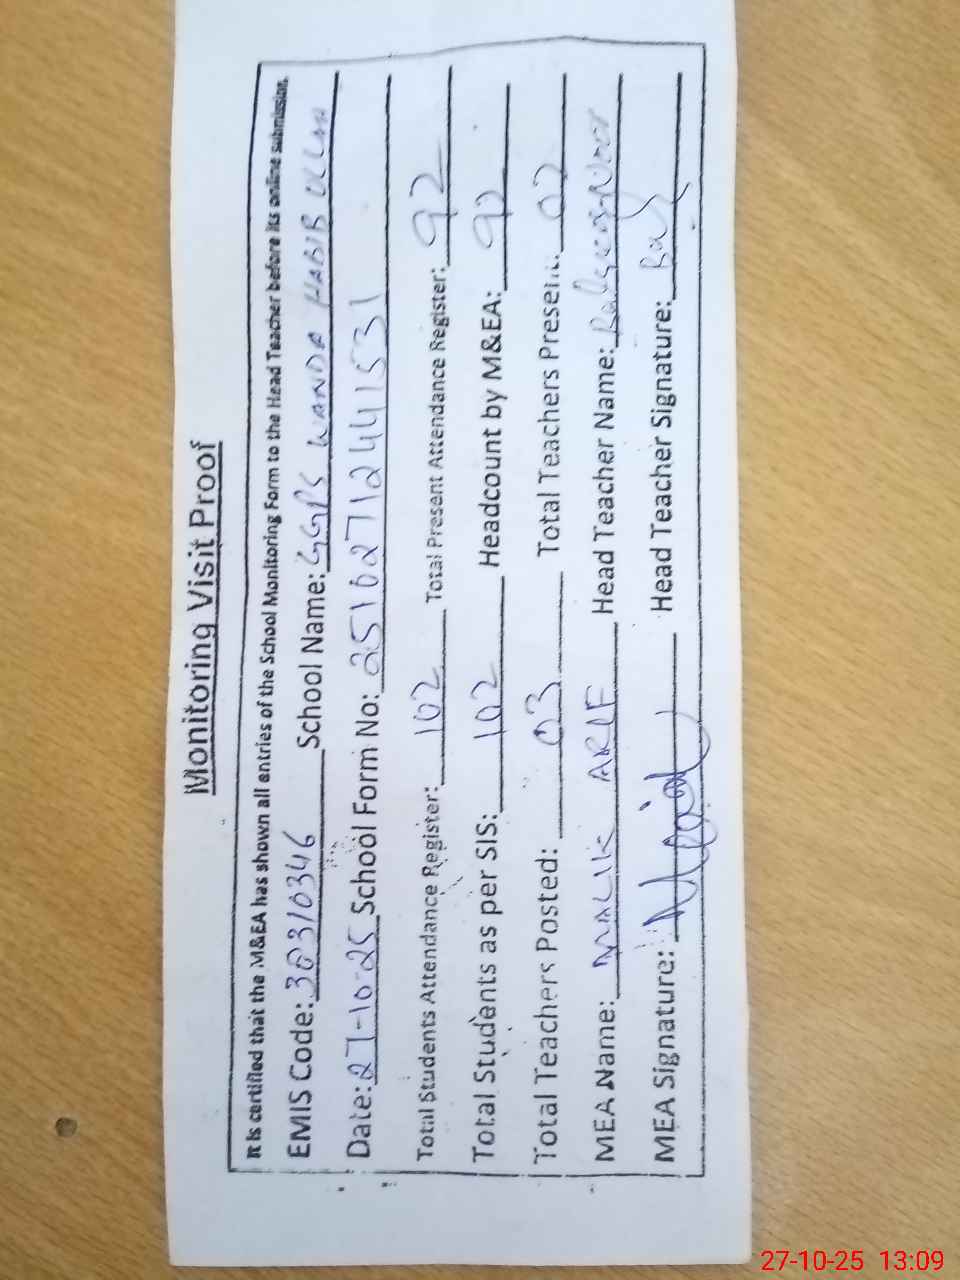 Monitoring Visit Proof
It is certified that the M&EA has shown all entries of the School Monitoring Form to the Head Teacher before its online submission.
EMIS Code: 38310346 School Name: GGPS WANDA HABIB ULLAH
Date: 27-10-25 School Form No: 25102712441531
Total Students Attendance Register: 102 Total Present Attendance Register: 92
Total Students as per SIS: 102 Headcount by M&EA: 92
Total Teachers Posted: 03 Total Teachers Present: 02
MEA Name: MALIK ARIF Head Teacher Name:
MEA Signature: Head Teacher Signature:
27-10-25 13:09